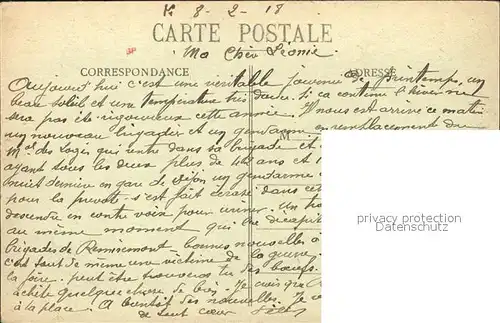 le 8-2-18
CARTE POSTALE
Ma Chère Léonie
CORRESPONDANCE ADRESSE
Aujourd'hui c'est une véritable journée de printemps, un
beau soleil et une température très douce. si ça continue l'hiver ne
sera pas été rigoureux cette année. Il nous est arrivé ce matin
un nouveau brigadier et un gendarme en remplacement du
M
Mal des logis qui rentre dans sa brigade et
ayant tous les deux plus de ans et
nuit dernière en gare de Dijon un gendarme
pour la prévôté s'est fait écraser dans cet
descendre en contre voie pour uriner. Un
au même moment qui l'a décapité
brigades de Remiremont bonnes nouvelles à
c'est tout de même une victime de la guerre.
la foire. peut être trouveras tu des bœufs.
achète quelque chose de bien. Je
à la place. A bientôt des nouvelles. Je
de tout cœur
privacy protection
Datenschutz